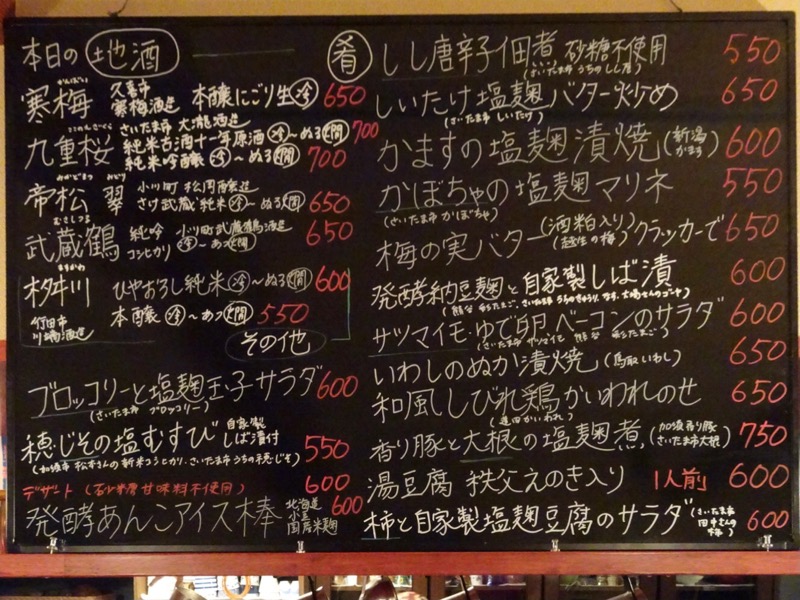 本日の 地酒
かんばい
寒梅 久喜市 寒梅酒造 本醸にごり生 冷 650
こ のえざくら
九重桜 さいたま市 大瀧酒造
純米古酒十年原酒 冷〜ぬる燗 700
純米吟醸 冷〜ぬる燗 700
みかどまつ みどり
帝松 翠 小川町 松岡醸造
さけ武蔵 純米 冷〜ぬる燗 650
むさしつる
武蔵鶴 純吟 小川町 武蔵鶴酒造
コシヒカリ 冷〜あつ燗 650
ますかわ
桝川 ひやおろし純米 冷〜ぬる燗 600
行田市 川端酒造 本醸 冷〜あつ燗 550
その他
ブロッコリーと塩麹玉子サラダ 600
(さいたま市 ブロッコリー)
穂じその塩むすび 自家製 しば漬付 550
(加須市 松本さんの新米コシヒカリ、さいたま市うちの穂じそ)
デザート (砂糖甘味料不使用) 600
発酵あんこアイス棒 北海道 小豆 国産米麹 600
肴 しし唐辛子佃煮 砂糖不使用 550
(さいたま市 うちのしし唐)
しいたけ塩麹バター炒め 650
(さいたま市 しいたけ)
かますの塩麹漬焼 (新潟 かます) 600
かぼちゃの塩麹マリネ 550
(さいたま市 かぼちゃ)
梅の実バター (酒粕入り) クラッカーで 650
(越生の梅)
発酵納豆麹と自家製しば漬 600
サツマイモ・ゆで卵、ベーコンのサラダ 600
(さいたま市 サツマイモ 熊谷 たまご)
いわしのぬか漬焼 (鳥取 いわし) 650
和風しびれ鶏かいわれのせ 650
(蓮田かいわれ)
香り豚と大根の塩麹煮 (加須香り豚 さいたま市大根) 750
湯豆腐 秩父えのき入り 1人前 600
柿と自家製塩麹豆腐のサラダ (さいたま市 田中さんの柿) 600